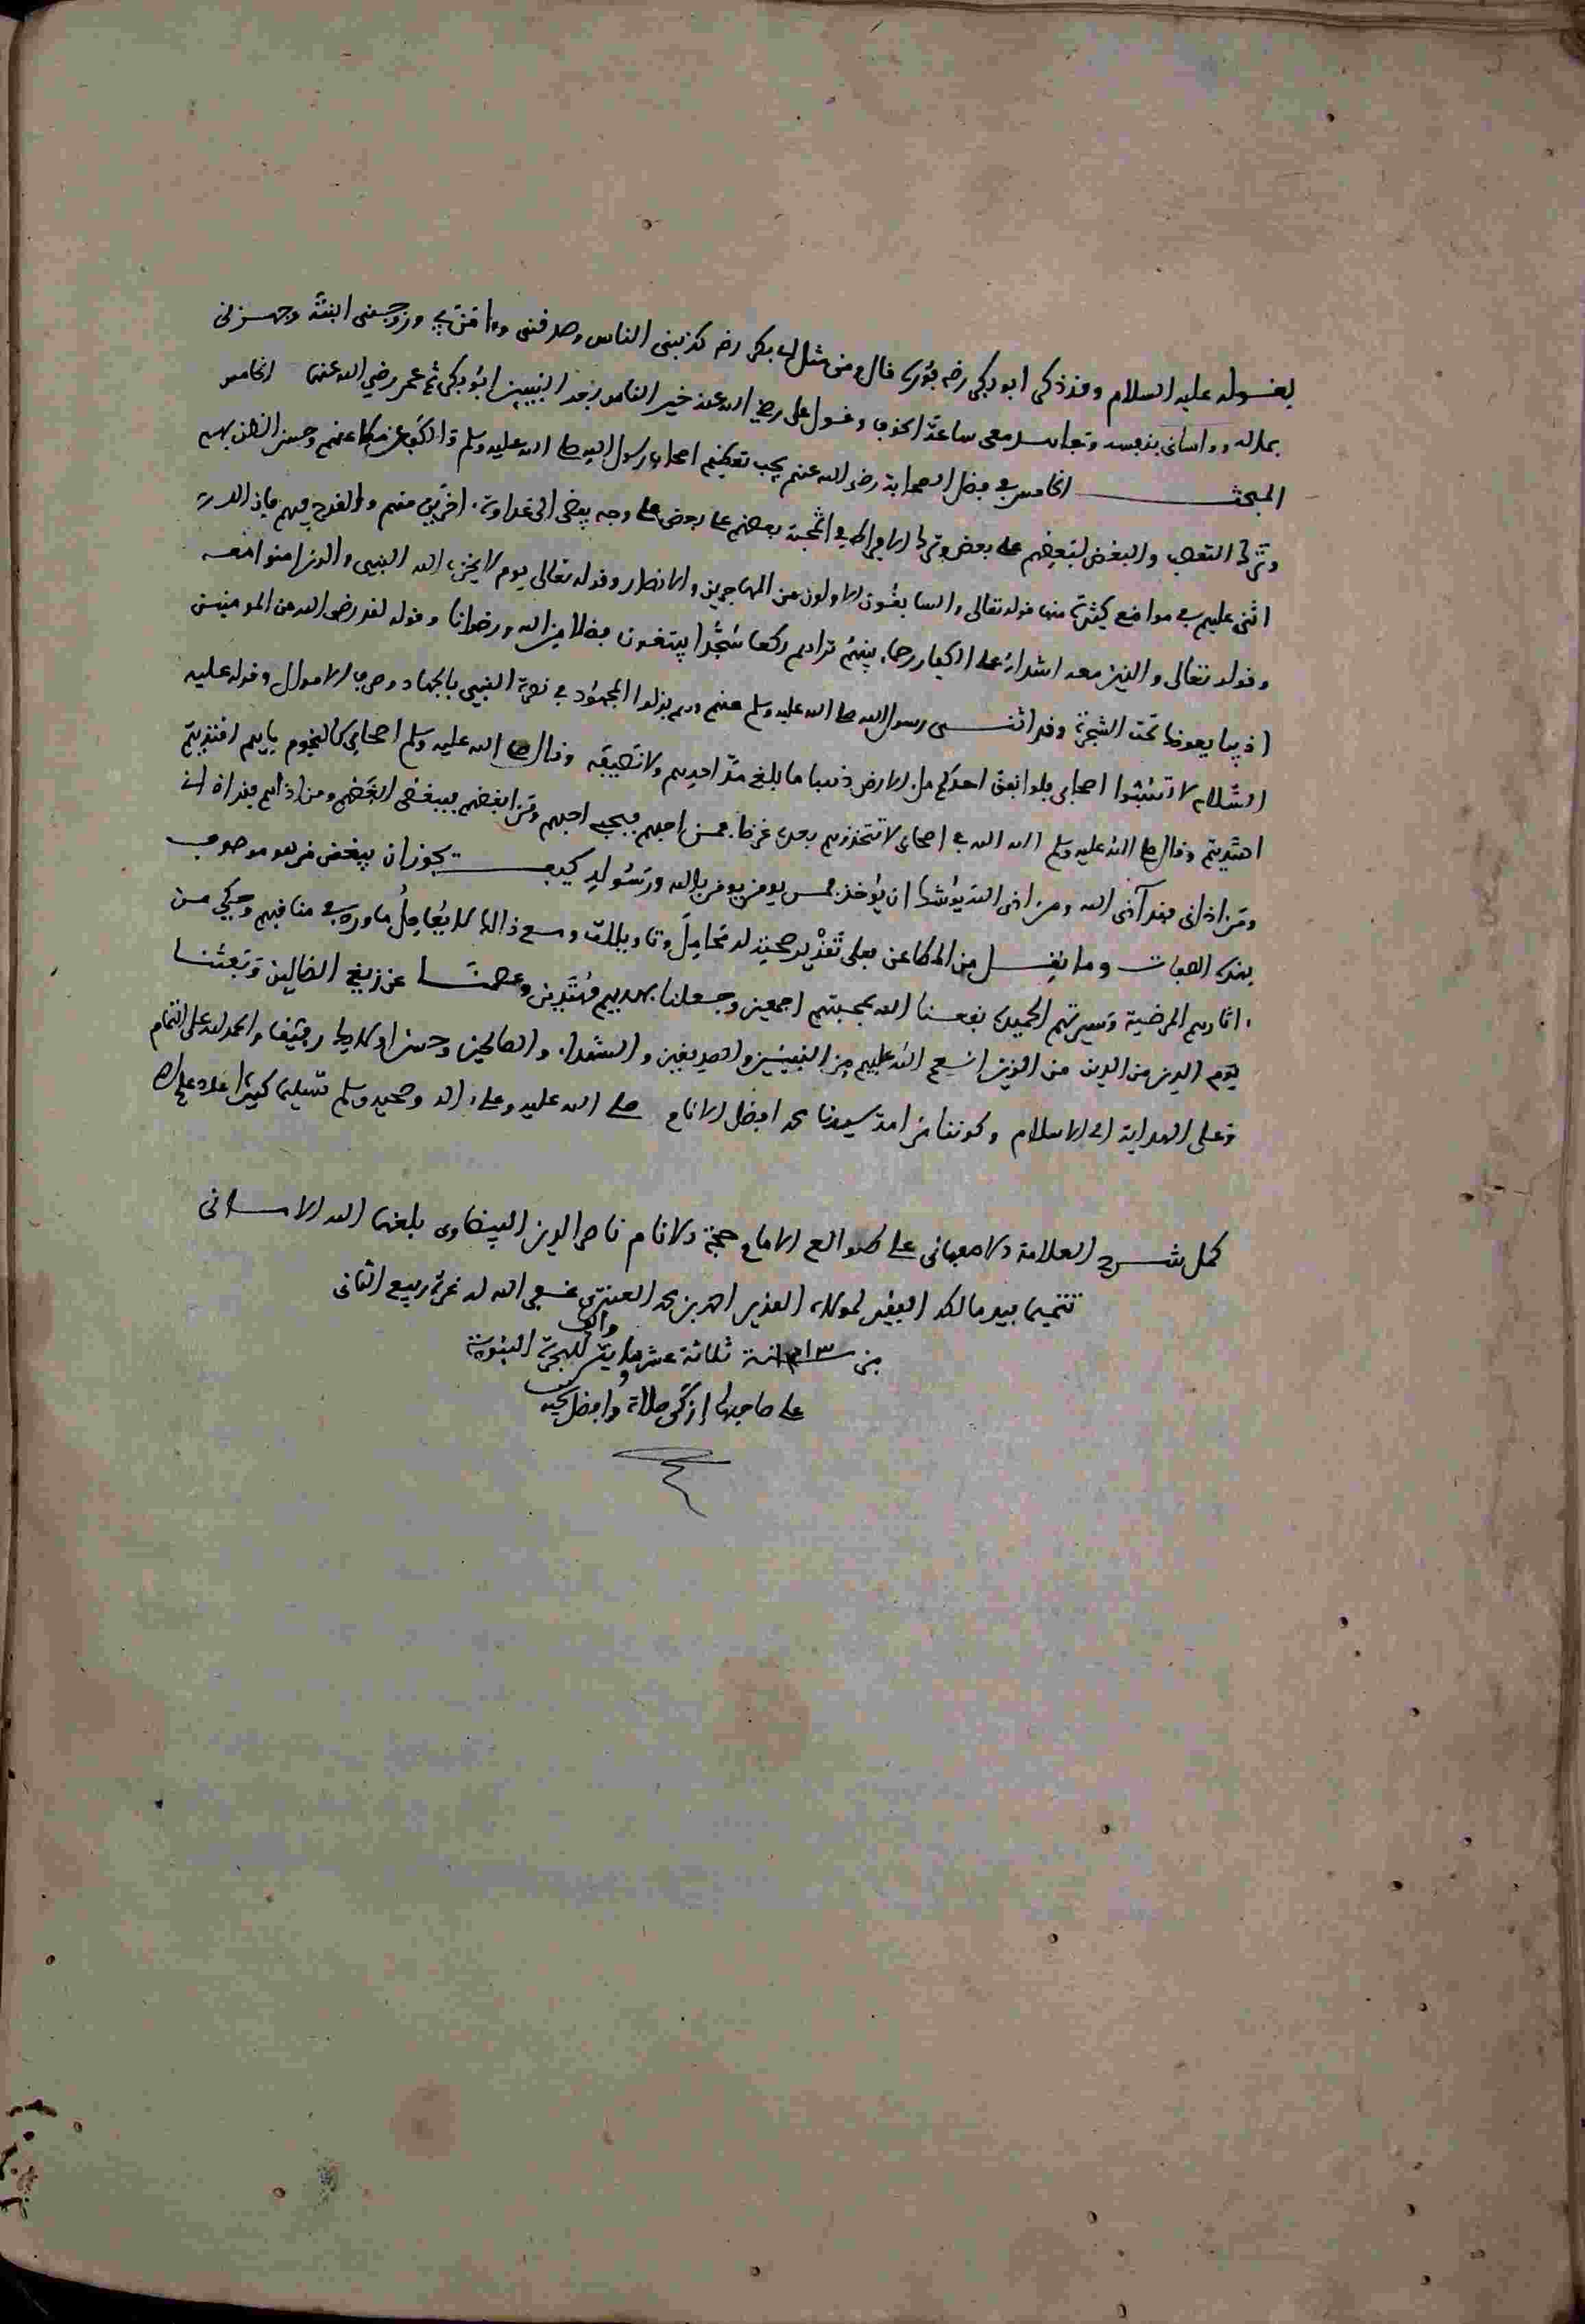 بقوله عليه السلام وقد ذكر ابو بكر رضه فقال ومن مثل ابي بكر رضه كذبني الناس وصدقني وءامن بي وزوجني ابنته وجهزني
بماله وواساني بنفسه وجاهد معي ساعة الخوف وبقول علي رضي الله عنه خير الناس بعد النبيين ابو بكر ثم عمر رضي الله عنهما الخامس
المبحث الخامس في فضل الصحابة رضي الله عنهم يجب تعظيم اصحاب رسول الله صلى الله عليه وسلم والكف عن مطاعنهم وحسن الظن بهم
وترك التعصب والبغض لبعضهم على بعض وترك الافراط في محبة بعضهم على بعض على وجه يفضي الى عداوة اخرين منهم والقدح فيهم فان الله
اثنى عليهم في مواضع كثيرة منها قوله تعالى والسابقون الاولون من المهاجرين والانصار وقوله تعالى يوم لا يخزي الله النبيء والذين امنوا معه
وقوله تعالى والذين معه اشداء على الكفار رحماء بينهم تراهم ركعا سجدا يبتغون فضلا من الله ورضوانا وقوله لقد رضي الله عن المومنين
اذ يبايعونك تحت الشجرة وقد اثنى رسول الله صلى الله عليه وسلم عنهم وهم بذلوا المجهود في نصرة النبيء بالجهاد وصرف الاموال وقوله عليه
السلام لا تسبوا اصحابي فلو انفق احدكم ملء الارض ذهبا ما بلغ مد احدهم ولا نصيفه وقال صلى الله عليه وسلم اصحابي كالنجوم بايهم اقتديتم
اهتديتم وقال صلى الله عليه وسلم الله الله في اصحابي لا تتخذوهم بعدي غرضا فمن احبهم فبحبي احبهم ومن ابغضهم فببغضي ابغضهم ومن اذاهم فقد اذاني
ومن اذاني فقد آذى الله ومن اذى الله يوشك ان يوخذ فمن يومن بالله ورسوله كيف يجوز ان يبغض من هو موصوف
بهذه الصفات وما ينقل من المطاعن فعلى تقدير صحته له محامل وتاويلات ومع ذالك لا يعادل ما ورد في مناقبهم وحكي من
اثارهم المرضية وسيرتهم الحميدة نفعنا الله بمحبتهم اجمعين وجعلنا بهديهم مهتدين وعصمنا عن زيغ الضالين وبعثنا
يوم الدين من الذين انعم الله عليهم من النبيئين والصديقين والشهداء والصالحين وحسن اولايك رفيقا والحمد لله على التمام
وعلى الهداية الى الاسلام وكوننا من امة سيدنا محمد افضل الانام صلى الله عليه وعلى اله وصحبه وسلم تسليما كثيرا
كمل شرح العلامة الاصفهاني على طوالع الامام حجة الانام ناصر الدين البيضاوي بلغهما الله الاماني
تتميما بيد مالكه الفقير لمولاه القدير احمد بن محمد العنتري غفر الله له غرة ربيع الثاني
من سنة ١٣١٣ ثلاثة عشر وثلاثمائة والف للهجرة النبوية
على صاحبها ازكى صلاة وافضل تحية